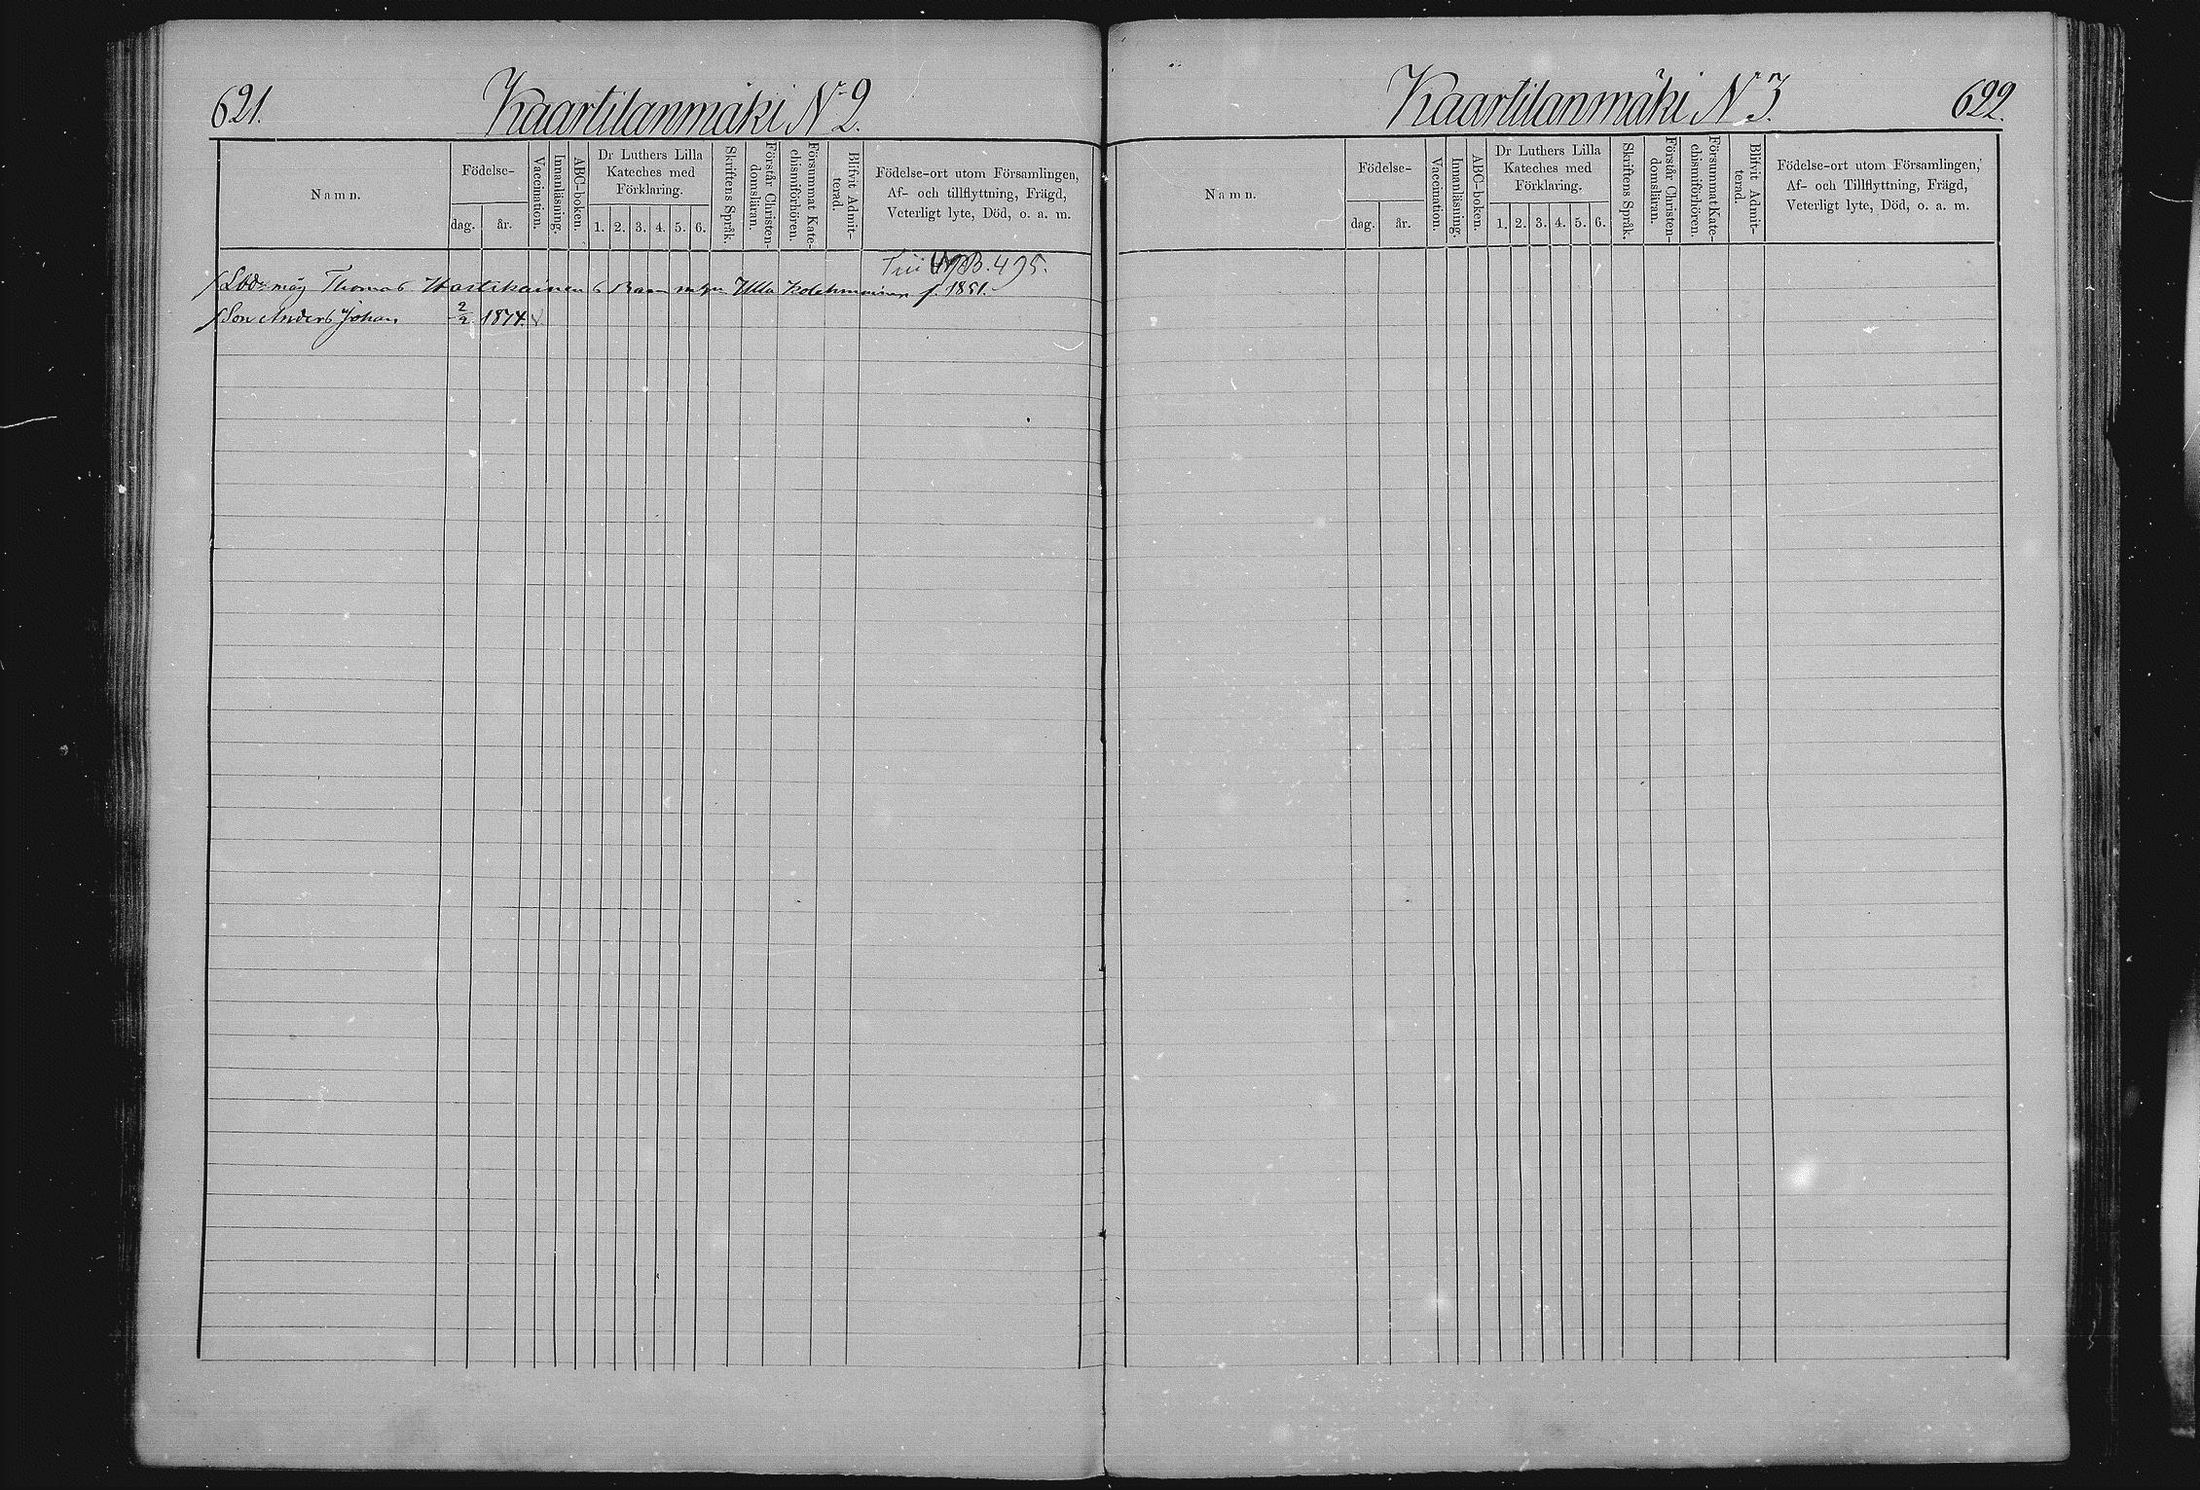 621.
Kaartilanmäki N 2.
Namn.
Födelse-
dag.
år.
Vaccination.
Innanläsning.
ABC-boken.
Dr Luthers Lilla
Kateches med
Förklaring.
1. 2. 3. 4. 5. 6.
Skriftens Språk.
Förstår Christen-
domsläran.
Försummat Kate-
chismiförhören.
Blifvit Admit-
terad.
Födelse-ort utom Församlingen,
Af- och tillflyttning, Frägd,
Veterligt lyte, Död, o. a. m.
B. 495.
Thomas Hartikainens Barn Ulla f. 1851.
Son Anders Johan 2/2 1874.
Kaartilanmäki N 3.
622.
Namn.
Födelse-
dag.
år.
Vaccination.
Innanläsning.
ABC-boken.
Dr Luthers Lilla
Kateches med
Förklaring.
1. 2. 3. 4. 5. 6.
Skriftens Språk.
Förstår Christen-
domsläran.
Försummat Kate-
chismiförhören.
Blifvit Admit-
terad.
Födelse-ort utom Församlingen,
Af- och Tillflyttning, Frägd,
Veterligt lyte, Död, o. a. m.